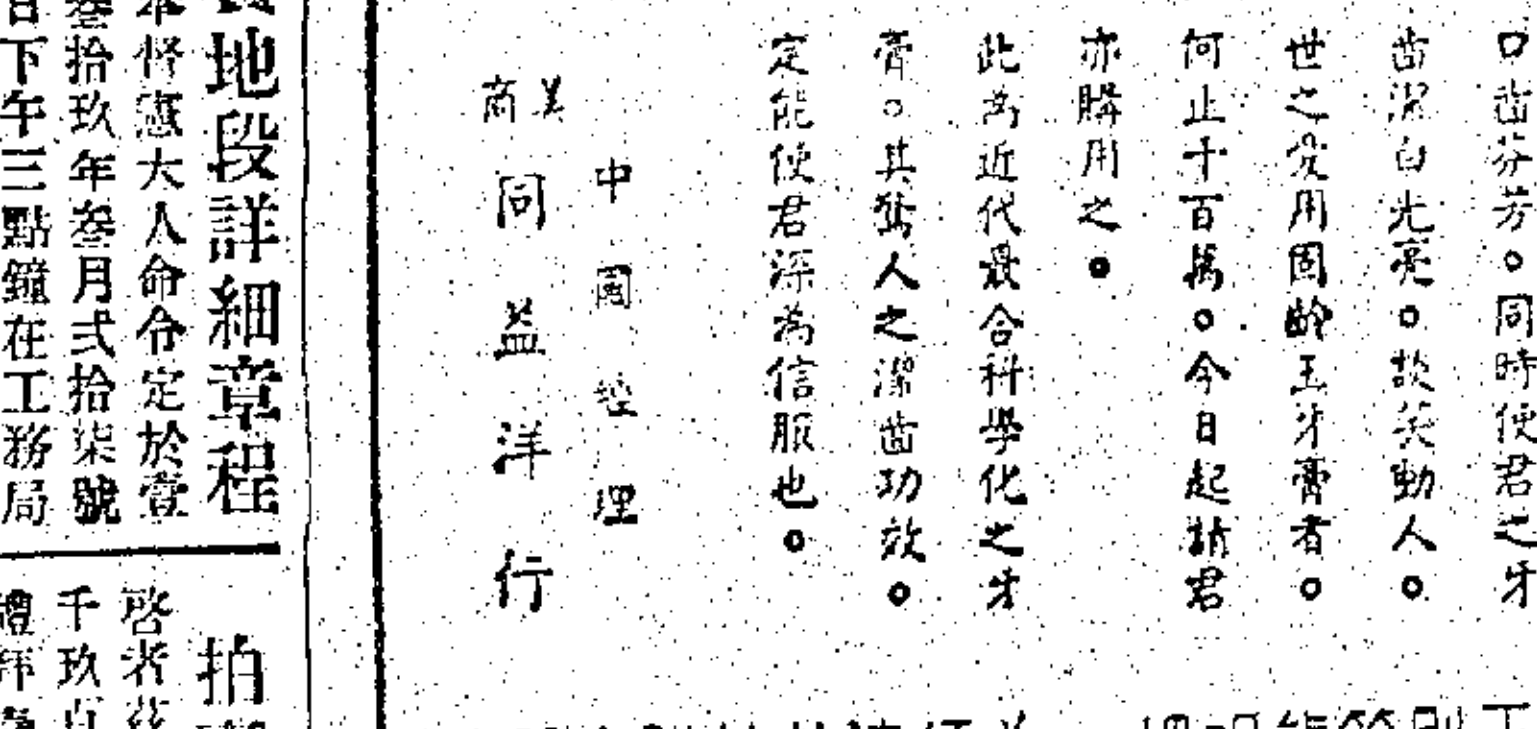 口齒芬芳。同時使君之牙
齒潔白光亮。故笑動人。
世之愛用固齡玉牙膏者。
何止千百萬。今日起請君
亦購用之。
此為近代最合科學化之牙
膏。其驚人之潔齒功效。
定能使君深為信服也。
中國經理
美商
同益洋行
地段詳細章程
本督憲大人命令定於壹
叁拾玖年叁月弍拾柒號
日下午三點鐘在工務局
拍
啓者茲
千玖百
禮拜